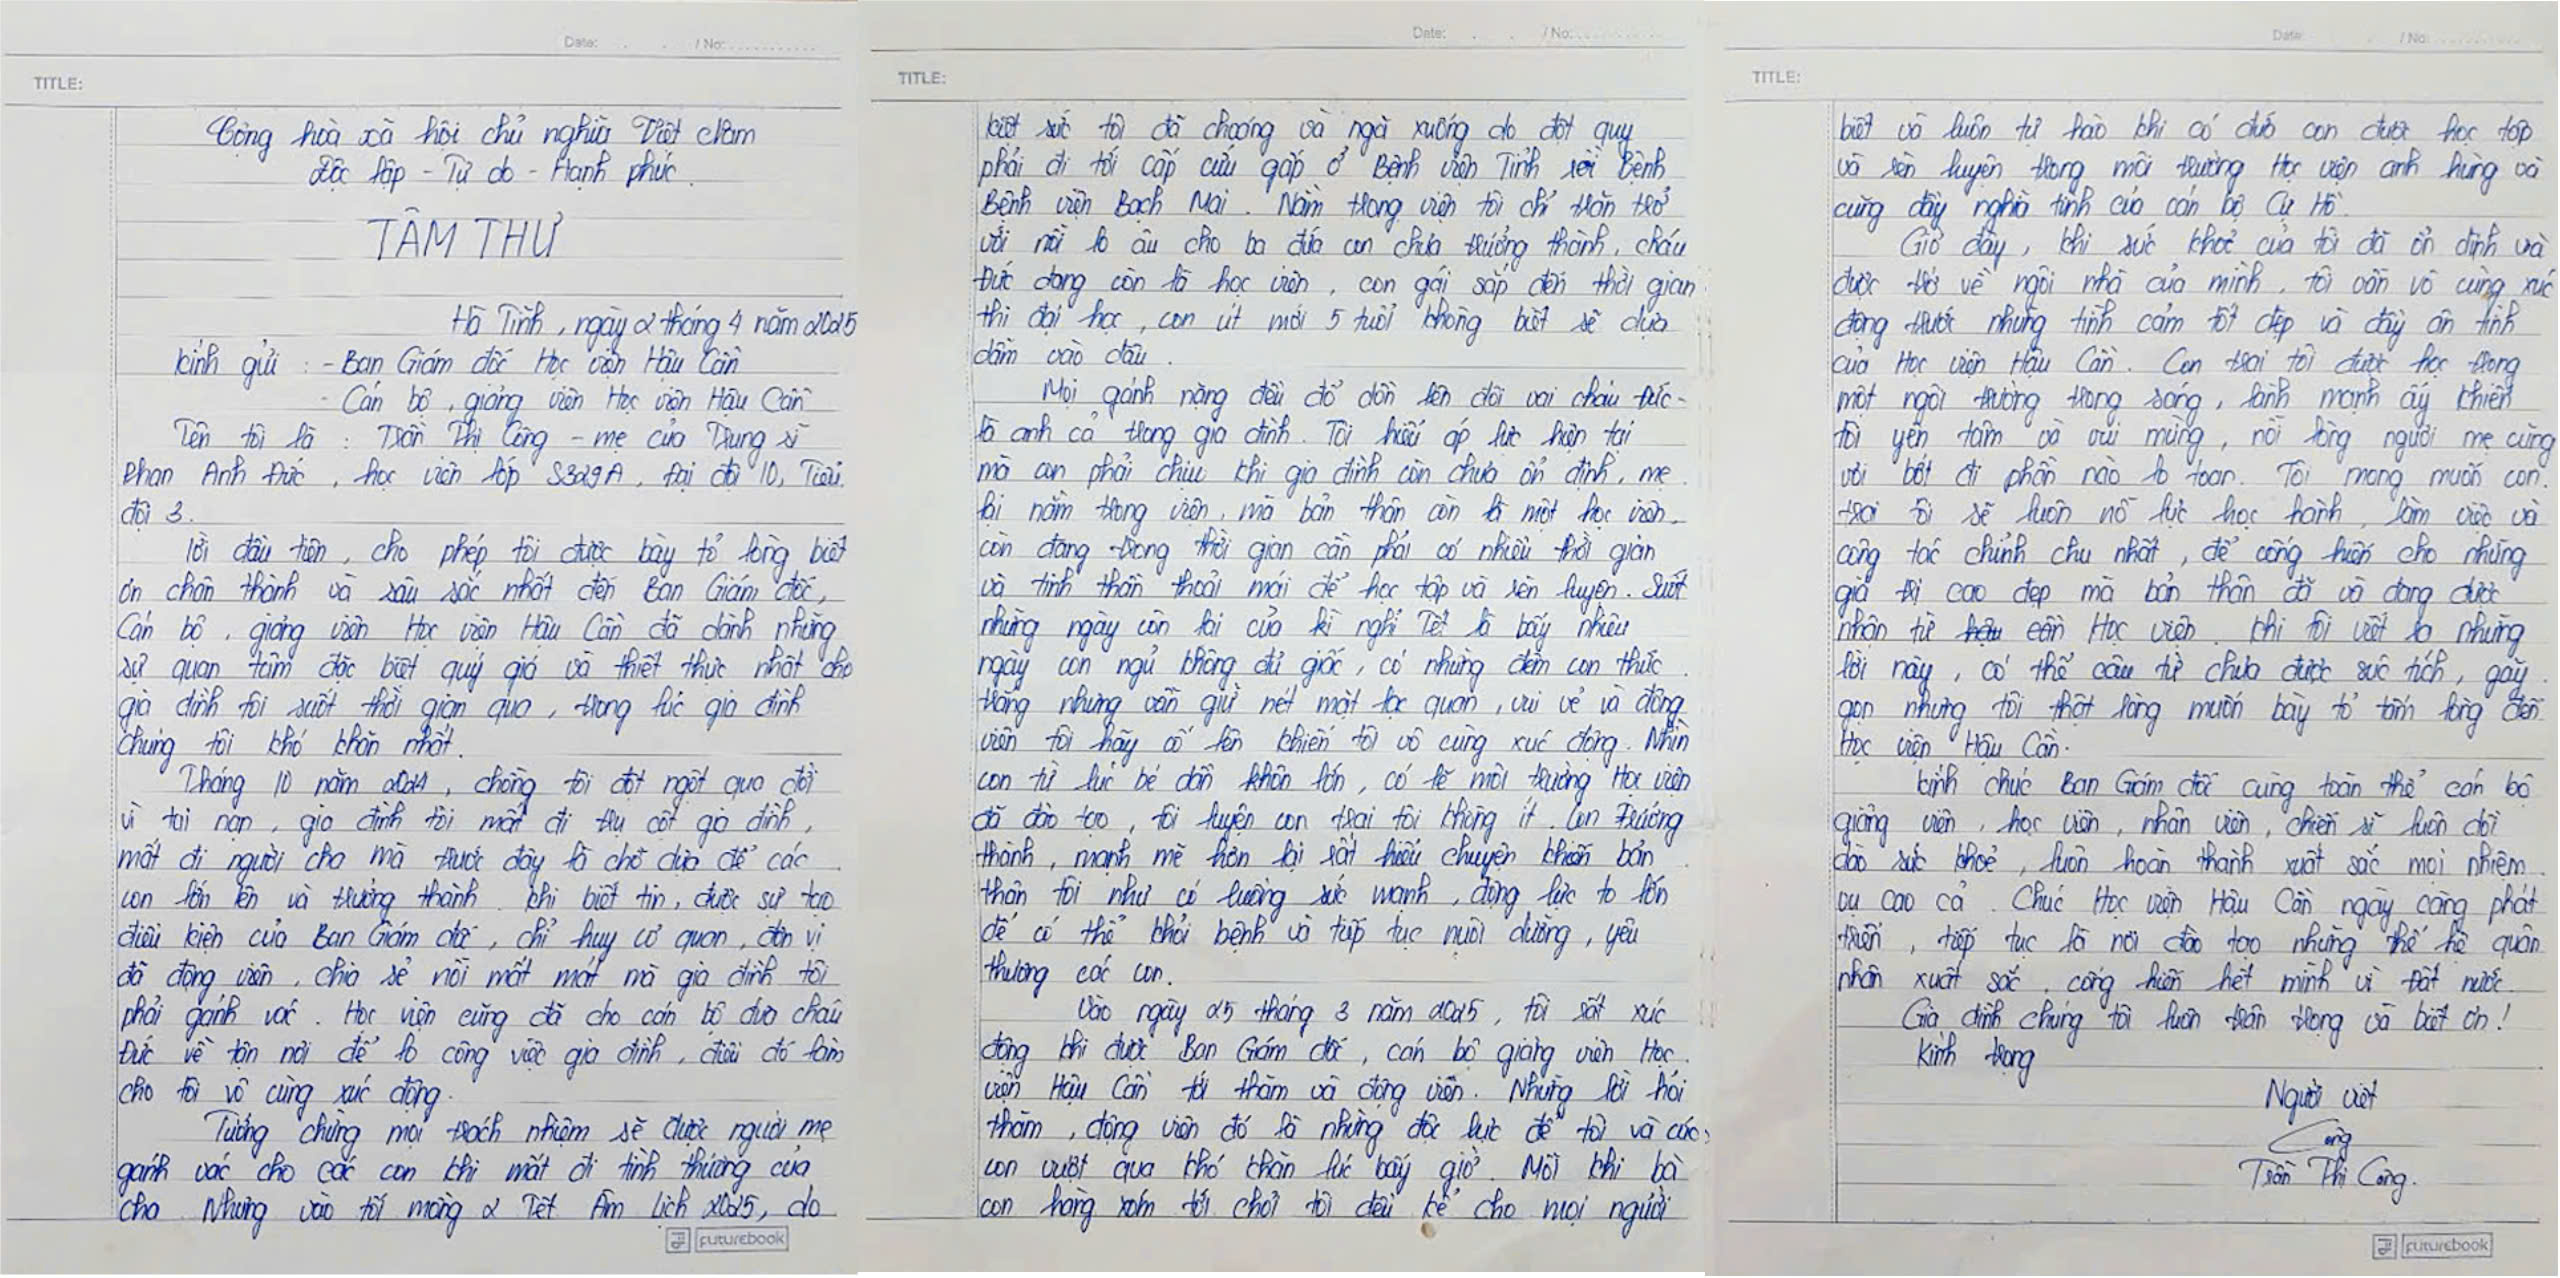 Date: . . / No: ............
TITLE:
Cộng hoà xã hội chủ nghĩa Việt Nam
Độc lập - Tự do - Hạnh phúc.
TÂM THƯ
Hà Tĩnh, ngày 2 tháng 4 năm 2025
Kính gửi : - Ban Giám đốc Học viện Hậu Cần
- Cán bộ, giảng viên Học viện Hậu Cần
Tên tôi là : Trần Thị Công - mẹ của Trung sĩ
Phan Anh Đức, học viên lớp S329A, Đại đội 10, Tiểu
đội 3.
Lời đầu tiên, cho phép tôi được bày tỏ lòng biết
ơn chân thành và sâu sắc nhất đến Ban Giám đốc,
Cán bộ, giảng viên Học viện Hậu Cần đã dành những
sự quan tâm đặc biệt quý giá và thiết thực nhất cho
gia đình tôi suốt thời gian qua, trong lúc gia đình
chúng tôi khó khăn nhất.
Tháng 10 năm 2024, chồng tôi đột ngột qua đời
vì tai nạn, gia đình tôi mất đi trụ cột gia đình,
mất đi người cha mà trước đây là chỗ dựa để các
con lớn lên và trưởng thành. Khi biết tin, được sự tạo
điều kiện của Ban Giám đốc, chỉ huy cơ quan, đơn vị
đã động viên, chia sẻ nỗi mất mát mà gia đình tôi
phải gánh vác. Học viện cũng đã cho cán bộ đưa cháu
Đức về tận nơi để lo công việc gia đình, điều đó làm
cho tôi vô cùng xúc động.
Tưởng chừng mọi trách nhiệm sẽ được người mẹ
gánh vác cho các con khi mất đi tình thương của
cha. Nhưng vào tối mồng 2 Tết Âm Lịch 2025, do
futurebook
Date: . . / No: ............
TITLE:
kiệt sức tôi đã choáng và ngã xuống do đột quỵ
phải đi tới cấp cứu gấp ở Bệnh viện Tỉnh rồi Bệnh
Bệnh viện Bạch Mai. Nằm trong viện tôi chỉ trăn trở
với nỗi lo âu cho ba đứa con chưa trưởng thành, cháu
Đức đang còn là học viên, con gái sắp đến thời gian
thi đại học, con út mới 5 tuổi không biết sẽ dựa
dẫm vào đâu.
Mọi gánh nặng đều đổ dồn lên đôi vai cháu Đức -
là anh cả trong gia đình. Tôi hiểu áp lực hiện tại
mà con phải chịu khi gia đình còn chưa ổn định, mẹ
lại nằm trong viện, mà bản thân còn là một học viên
còn đang trong thời gian cần phải có nhiều thời gian
và tinh thần thoải mái để học tập và rèn luyện. Suốt
những ngày còn lại của kì nghỉ Tết là bấy nhiêu
ngày con ngủ không đủ giấc, có những đêm con thức
trắng nhưng vẫn giữ nét mặt lạc quan, vui vẻ và động
viên tôi hãy cố lên khiến tôi vô cùng xúc động. Nhìn
con từ lúc bé dần khôn lớn, có lẽ môi trường Học viện
đã đào tạo, tôi luyện con trai tôi không ít. Con trưởng
thành, mạnh mẽ hơn lại rất hiểu chuyện khiến bản
thân tôi như có luồng sức mạnh, động lực to lớn
để có thể khỏi bệnh và tiếp tục nuôi dưỡng, yêu
thương các con.
Vào ngày 25 tháng 3 năm 2025, tôi rất xúc
động khi được Ban Giám đốc, cán bộ giảng viên Học
viện Hậu Cần tới thăm và động viên. Những lời hỏi
thăm, động viên đó là những độc lực để tôi và các
con vượt qua khó khăn lúc bấy giờ. Mỗi khi bà
con hàng xóm tới chơi tôi đều kể cho mọi người
Date: . . / No: ............
TITLE:
biết và luôn tự hào khi có đứa con được học tập
và rèn luyện trong môi trường Học viện anh hùng và
cũng đầy nghĩa tình của cán bộ Cụ Hồ.
Giờ đây, khi sức khoẻ của tôi đã ổn định và
được trở về ngôi nhà của mình, tôi vẫn vô cùng xúc
động trước những tình cảm tốt đẹp và đầy ân tình
của Học viện Hậu Cần. Con trai tôi được học trong
một ngôi trường trong sáng, lành mạnh ấy khiến
tôi yên tâm và vui mừng, nỗi lòng người mẹ cũng
vơi bớt đi phần nào lo toan. Tôi mong muốn con
trai tôi sẽ luôn nỗ lực học hành, làm việc và
công tác chỉnh chu nhất, để cống hiến cho những
giá trị cao đẹp mà bản thân đã và đang được
nhận từ Học viện. Khi tôi viết ra những
lời này, có thể câu từ chưa được súc tích, gãy
gọn nhưng tôi thật lòng muốn bày tỏ tấm lòng đến
Học viện Hậu Cần.
Kính chúc Ban Giám đốc cùng toàn thể cán bộ
giảng viên, học viên, nhân viên, chiến sĩ luôn dồi
dào sức khoẻ, luôn hoàn thành xuất sắc mọi nhiệm
vụ cao cả. Chúc Học viện Hậu Cần ngày càng phát
triển, tiếp tục là nơi đào tạo những thế hệ quân
nhân xuất sắc, cống hiến hết mình vì Đất nước.
Gia đình chúng tôi luôn trân trọng và biết ơn!
Kính trọng
Người viết
Công
Trần Thị Công.
futurebook